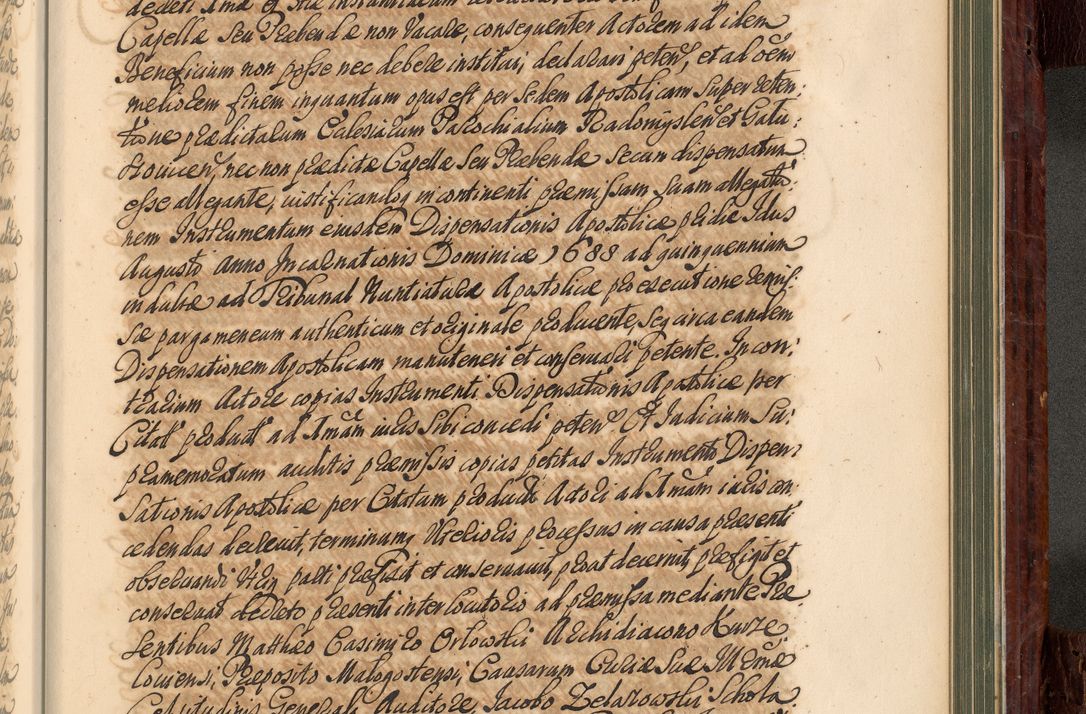 Capellæ Seu Præbendæ non Vacare, consequenter Actorem ad idem
Beneficium non posse nec debere institui, declarari peten, et ad oem
meliorem finem inquantum opus est per Sedem Apostolicam Super reten:
tione prædictarum Eclesiarum Parochialium Radomyslen et Gatu:
Szouicen, nec non prædictæ Capellæ Seu Præbendæ Secum dispensatum
esse allegante, iustificandoq in continenti præmissam Suam allegatio:
nem Instrumentum eiusdem Dispensationis Apostolicæ pridie Idus
Augusti Anno Incarnationis Dominicæ 1688 ad quinquennium
indultæ ad Tribunal Nuntiaturæ Apostolicæ pro executione remis:
sæ pargameneum authenticum et originale producente, Seq circa eandem
Dispensationem Apostolicam manuteneri et conseruari Petente. In con:
trarium Actore copias Instrumenti Dispensationis Apostolicæ per
Citat product ad Amam iuris Sibi concedi peten Et Iudicium Su:
pramemoratum auditis præmissis copias petitas Instrumenti Dispen:
sationis Apostolicæ per Citatum producti Actori ad Amam iuris con:
cedendas decreuit, terminum Vlterioris processus in causa præsenti
obseruandi Vtriq parti præfixit et conseruauit, prout decernit, præfigit et
conseruat decreto præsenti interlocutorio ad præmissa mediante Præ
sentibus Mattheo Casimiro Orlowski Archidiacono Kurze
louiensi, Præposito Malogostensi, Causarum Curiæ Suæ Illmæ
Celsitudinis Generali Auditore, Jacobo Zelazowski Schola